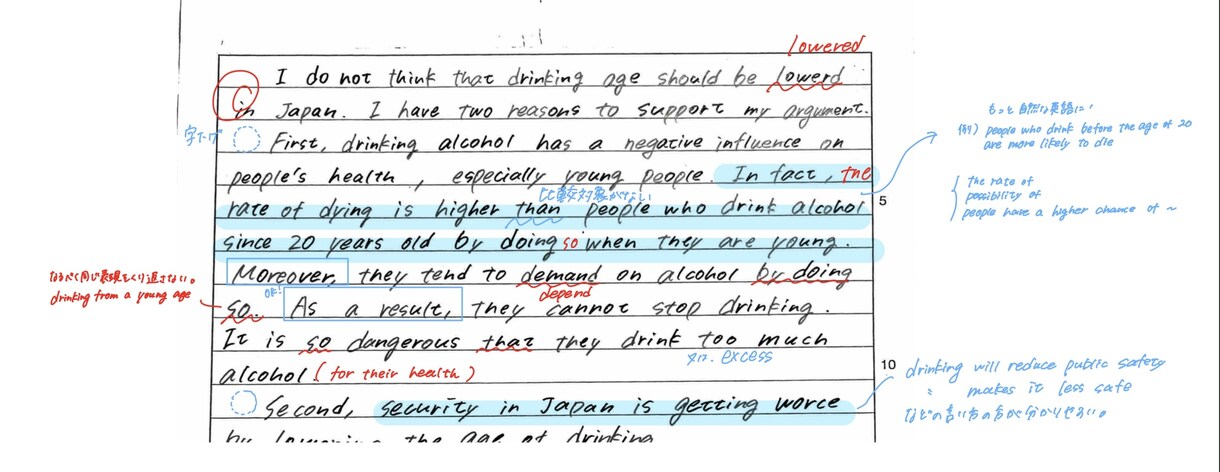 lowered
I do not think that drinking age should be lowerd
in Japan. I have two reasons to support my argument.
字下げ
First, drinking alcohol has a negative influence on
people's health, especially young people. In fact, the
比較対象がない
rate of dying is higher than people who drink alcohol
5
since 20 years old by doing so when they are young.
Moreover, they tend to demand on alcohol by doing
OK!
depend
so. As a result, they cannot stop drinking.
It is so dangerous that they drink too much
excess
alcohol (for their health)
10
Second, security in Japan is getting worce
by lowering the age of drinking
もっと自然な英語に!
例) people who drink before the age of 20
are more likely to die
the rate of
possibility of
people have a higher chance of ~
なるべく同じ表現をくり返さない。
drinking from a young age
drinking will reduce public safety
makes it less safe
などの言い方の方が分かりやすい。